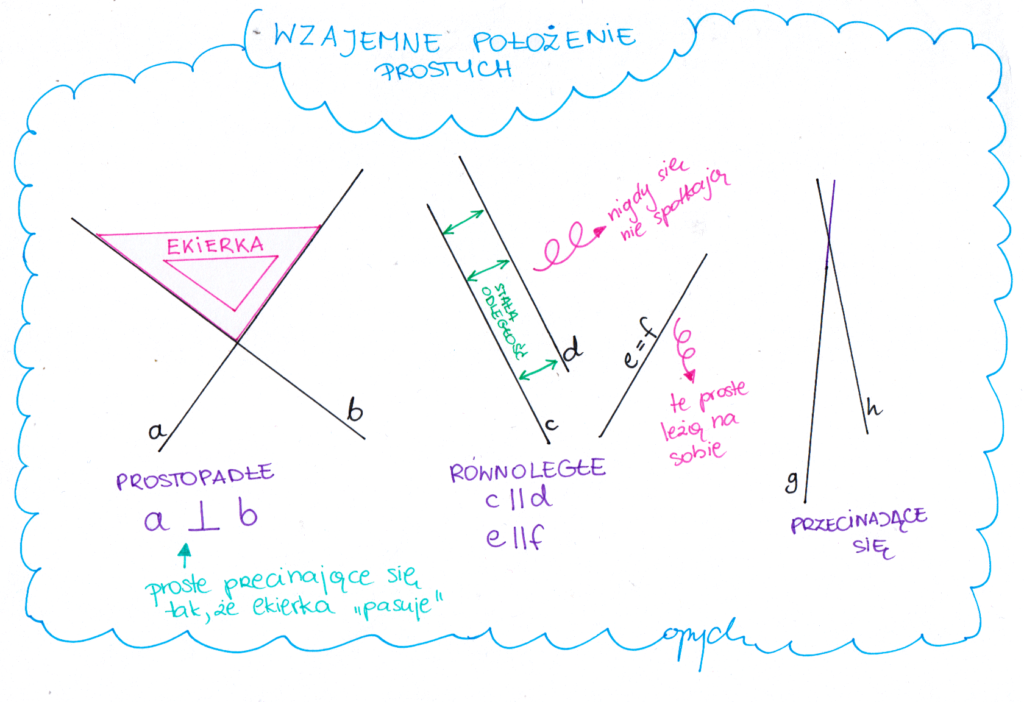 WZAJEMNE POŁOŻENIE
PROSTYCH
EKIERKA
a
b
PROSTOPADŁE
a ⊥ b
proste precinające się
tak, że ekierka „pasuje"
STAŁA
ODLEGŁOŚĆ
d
c
nigdy się
nie spotkają
e=f
te proste
leżą na
sobie
RÓWNOLEGŁE
c||d
e||f
h
g
PRZECINAJĄCE
SIĘ
opych